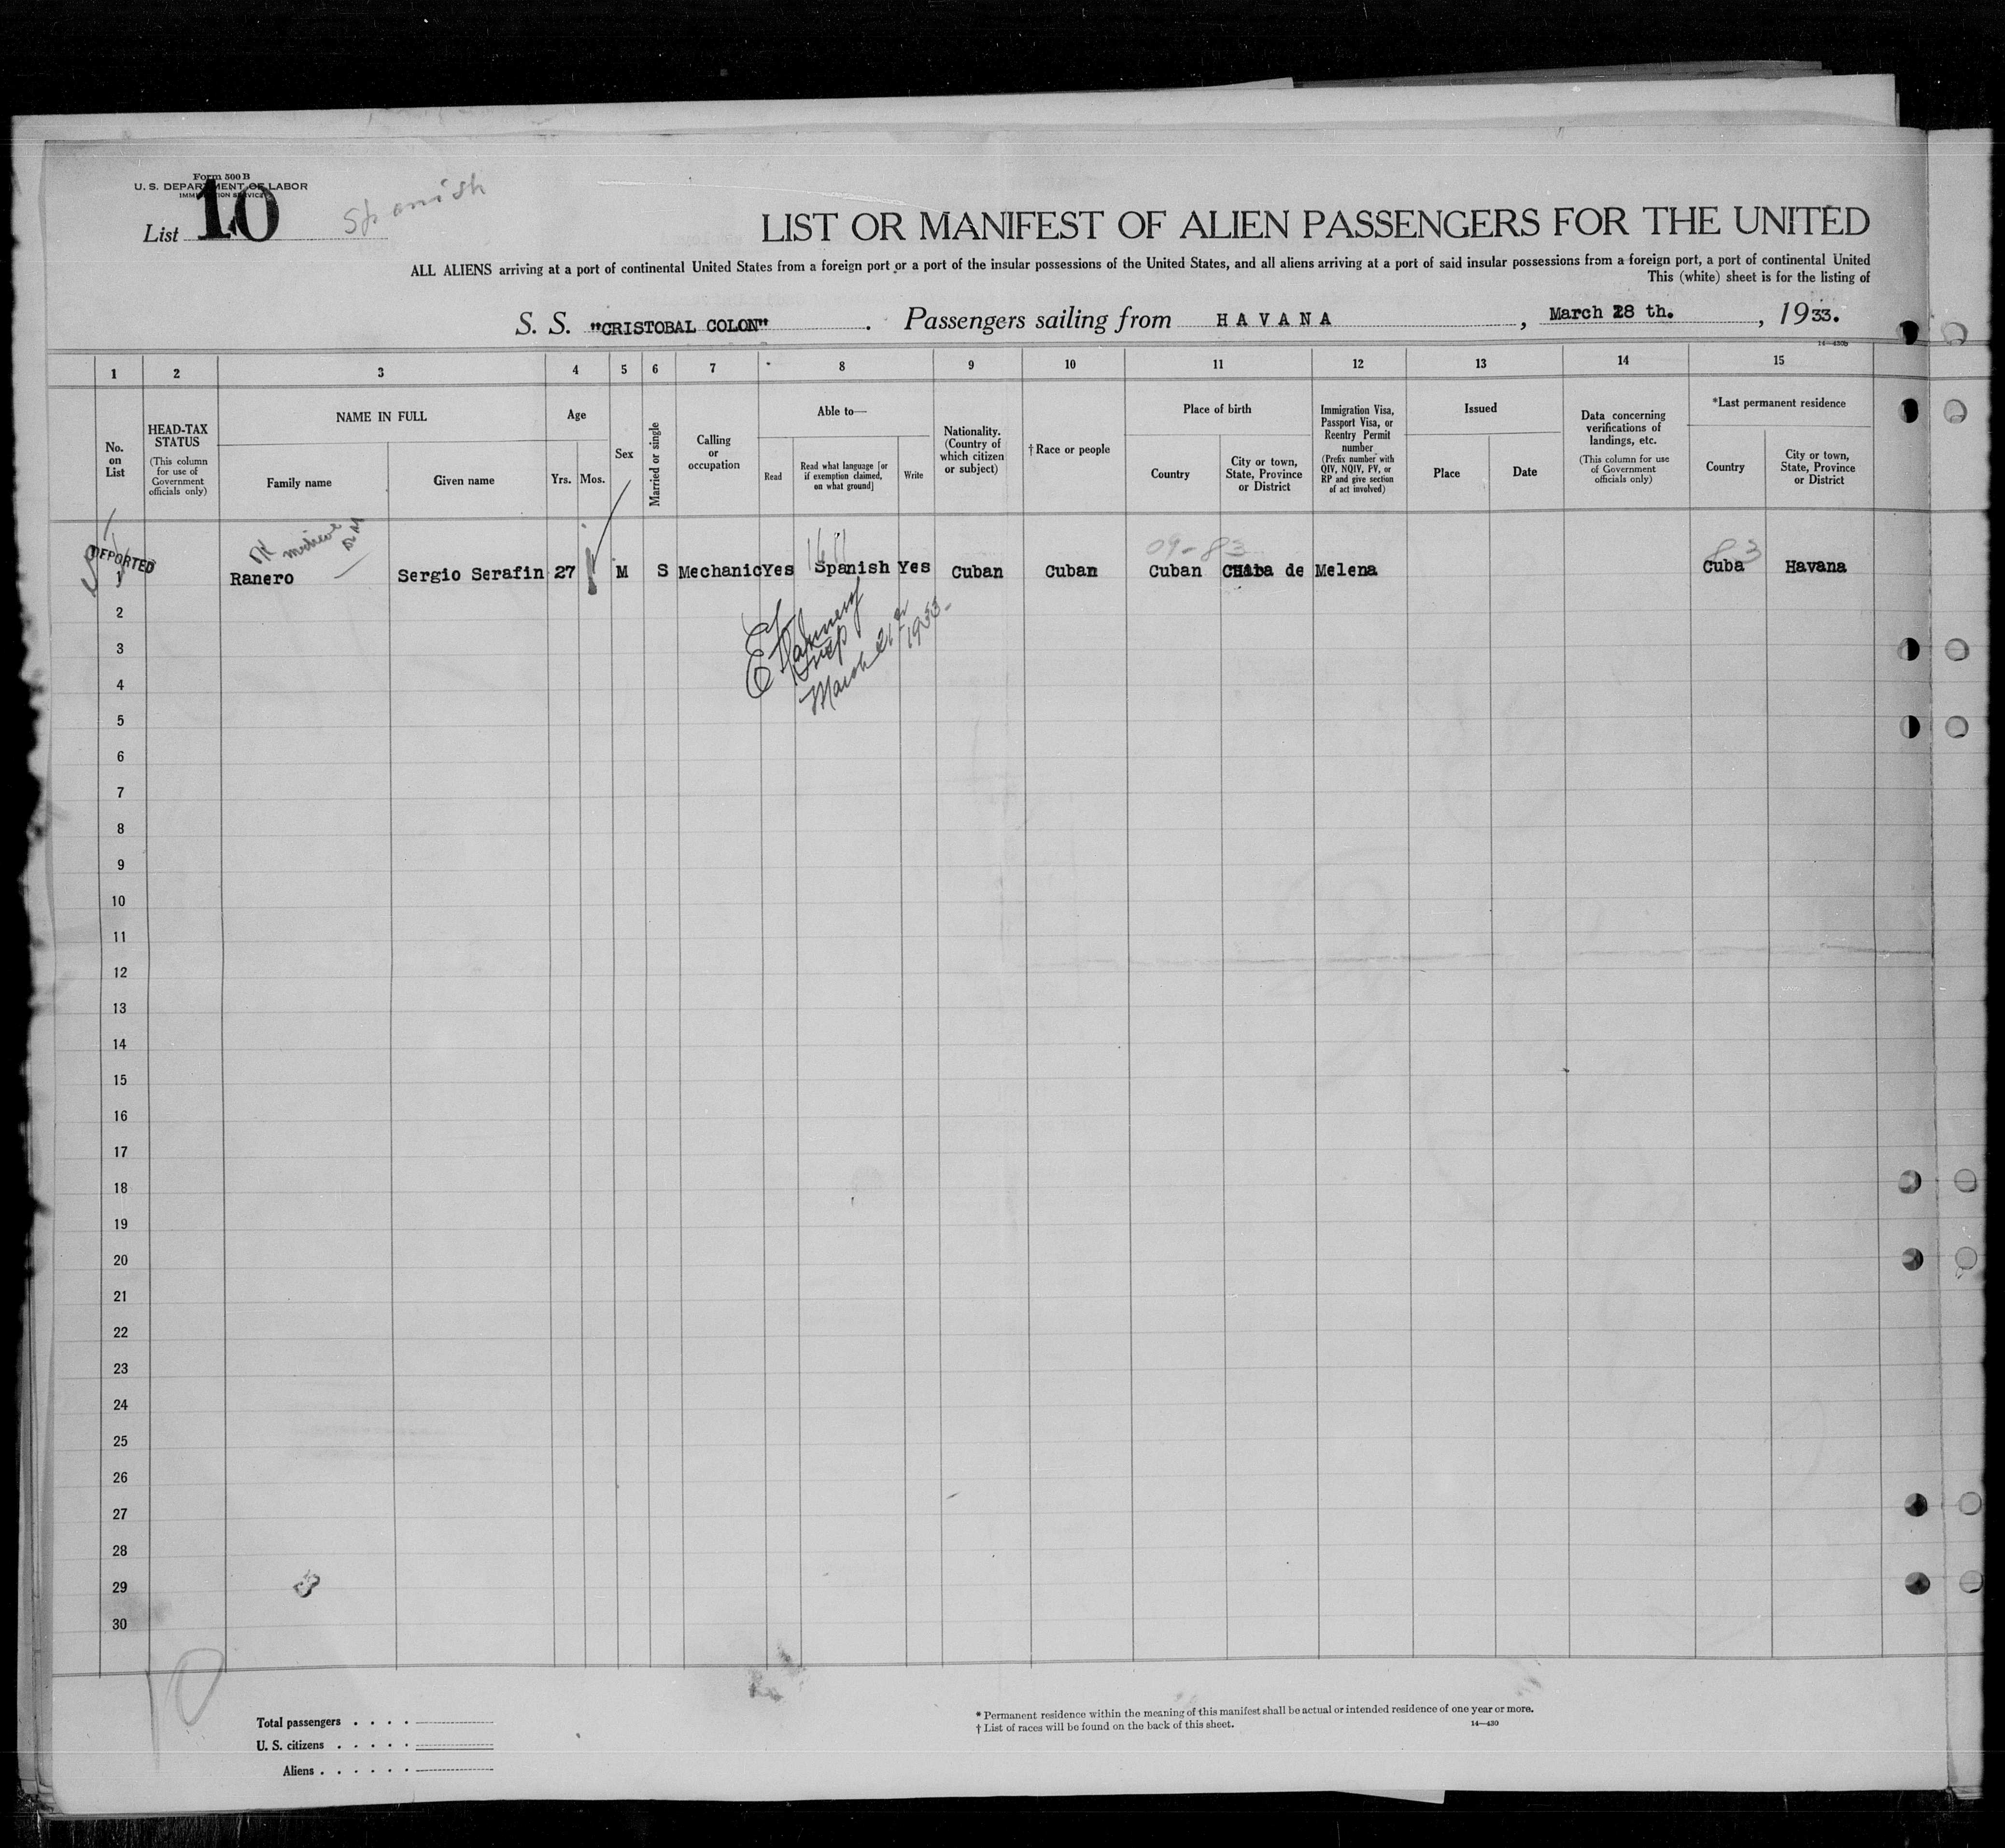 Form 500 B
U. S. DEPARTMENT OF LABOR
IMMIGRATION SERVICE
List 10
Spanish
LIST OR MANIFEST OF ALIEN PASSENGERS FOR THE UNITED
ALL ALIENS arriving at a port of continental United States from a foreign port or a port of the insular possessions of the United States, and all aliens arriving at a port of said insular possessions from a foreign port, a port of continental United
This (white) sheet is for the listing of
S. S. "CRISTOBAL COLON" . Passengers sailing from HAVANA , March 28 th. , 1933.
14—430b
1 2 3 4 5 6 7 8 9 10 11 12 13 14 15
No. on List
HEAD-TAX STATUS
(This column for use of Government officials only)
NAME IN FULL
Family name
Given name
Age
Yrs. Mos.
Sex
Married or single
Calling or occupation
Able to—
Read
Read what language [or if exemption claimed, on what ground]
Write
Nationality. (Country of which citizen or subject)
† Race or people
Place of birth
Country
City or town, State, Province or District
Immigration Visa, Passport Visa, or Reentry Permit number
(Prefix number with QIV, NQIV, PV, or RP and give section of act involved)
Issued
Place
Date
Data concerning verifications of landings, etc.
(This column for use of Government officials only)
*Last permanent residence
Country
City or town, State, Province or District
DEPORTED
09-83
83
1 Ranero Sergio Serafin 27 M S Mechanic Yes Spanish Yes Cuban Cuban Cuban de Melena Cuba Havana
March 21
1933
2
3
4
5
6
7
8
9
10
11
12
13
14
15
16
17
18
19
20
21
22
23
24
25
26
27
28
29
30
10
Total passengers . . . .
U. S. citizens . . . . .
Aliens . . . . . .
* Permanent residence within the meaning of this manifest shall be actual or intended residence of one year or more.
† List of races will be found on the back of this sheet.
14—430